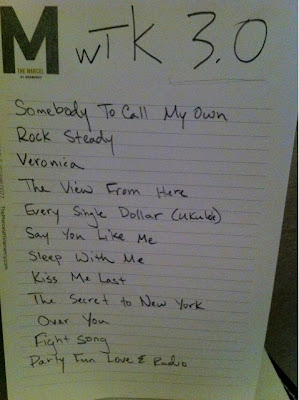 M
THE MARCEL
AT GRAMERCY
WTK 3.0
Somebody To Call My Own
Rock Steady
Veronica
The View From Here
Every Single Dollar (Ukulele)
Say You Like Me
Sleep With Me
Kiss Me Last
The Secret to New York
Over You
Fight Song
Party Fun Love & Radio